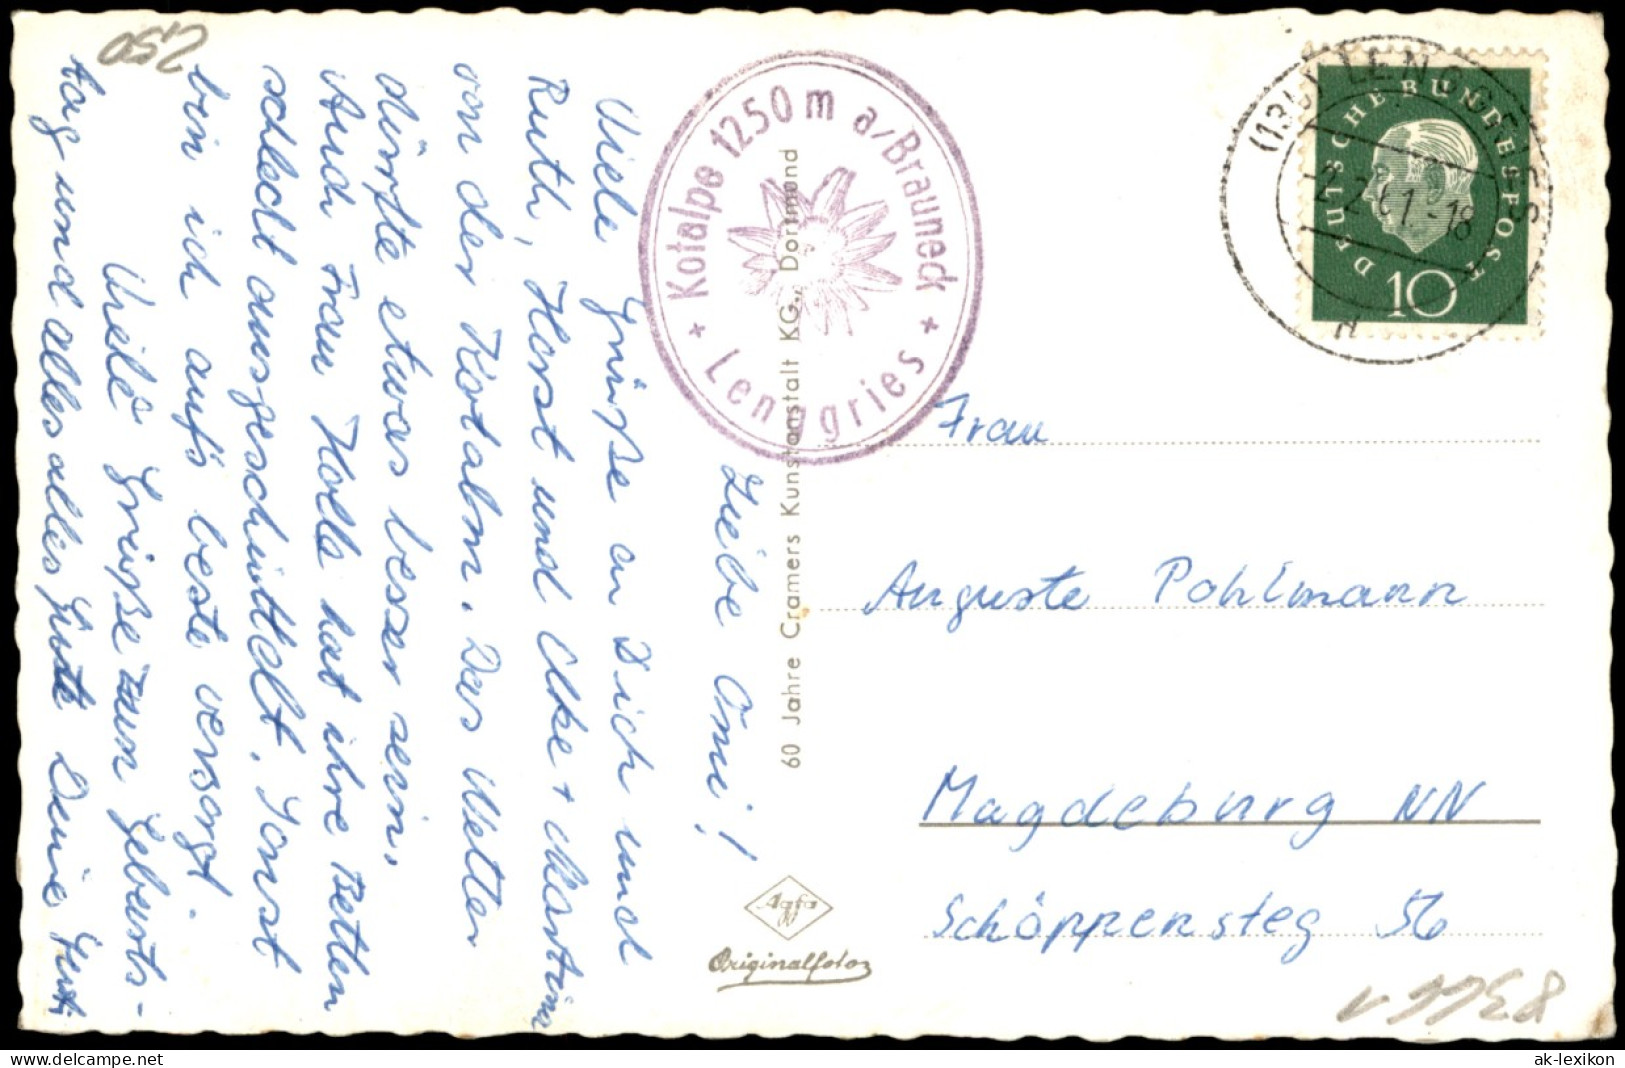 Liebe Omi!
Viele Grüße an Dich und
Ruth, Horst und Elke + Martin
von der Kotalm. Das Wetter
dürfte etwas besser sein.
Auch Frau Holle hat ihre Betten
schlecht ausgeschüttelt. Sonst
bin ich aufs beste versorgt.
Viele Grüße zum Geburts-
tag und alles alles Gute Deine
2,50
Kotalpe 1250 m a/Brauneck
* Lenggries *
60 Jahre Cramers Kunstanstalt KG., Dortmund
Agfa
Originalfoto
(13b) LENGGRIES
2.2.61.-18
DEUTSCHE BUNDESPOST
10
Frau
Auguste Pohlmann
Magdeburg NN
Schöppensteg 56
ak-lexikon
www.delcampe.net